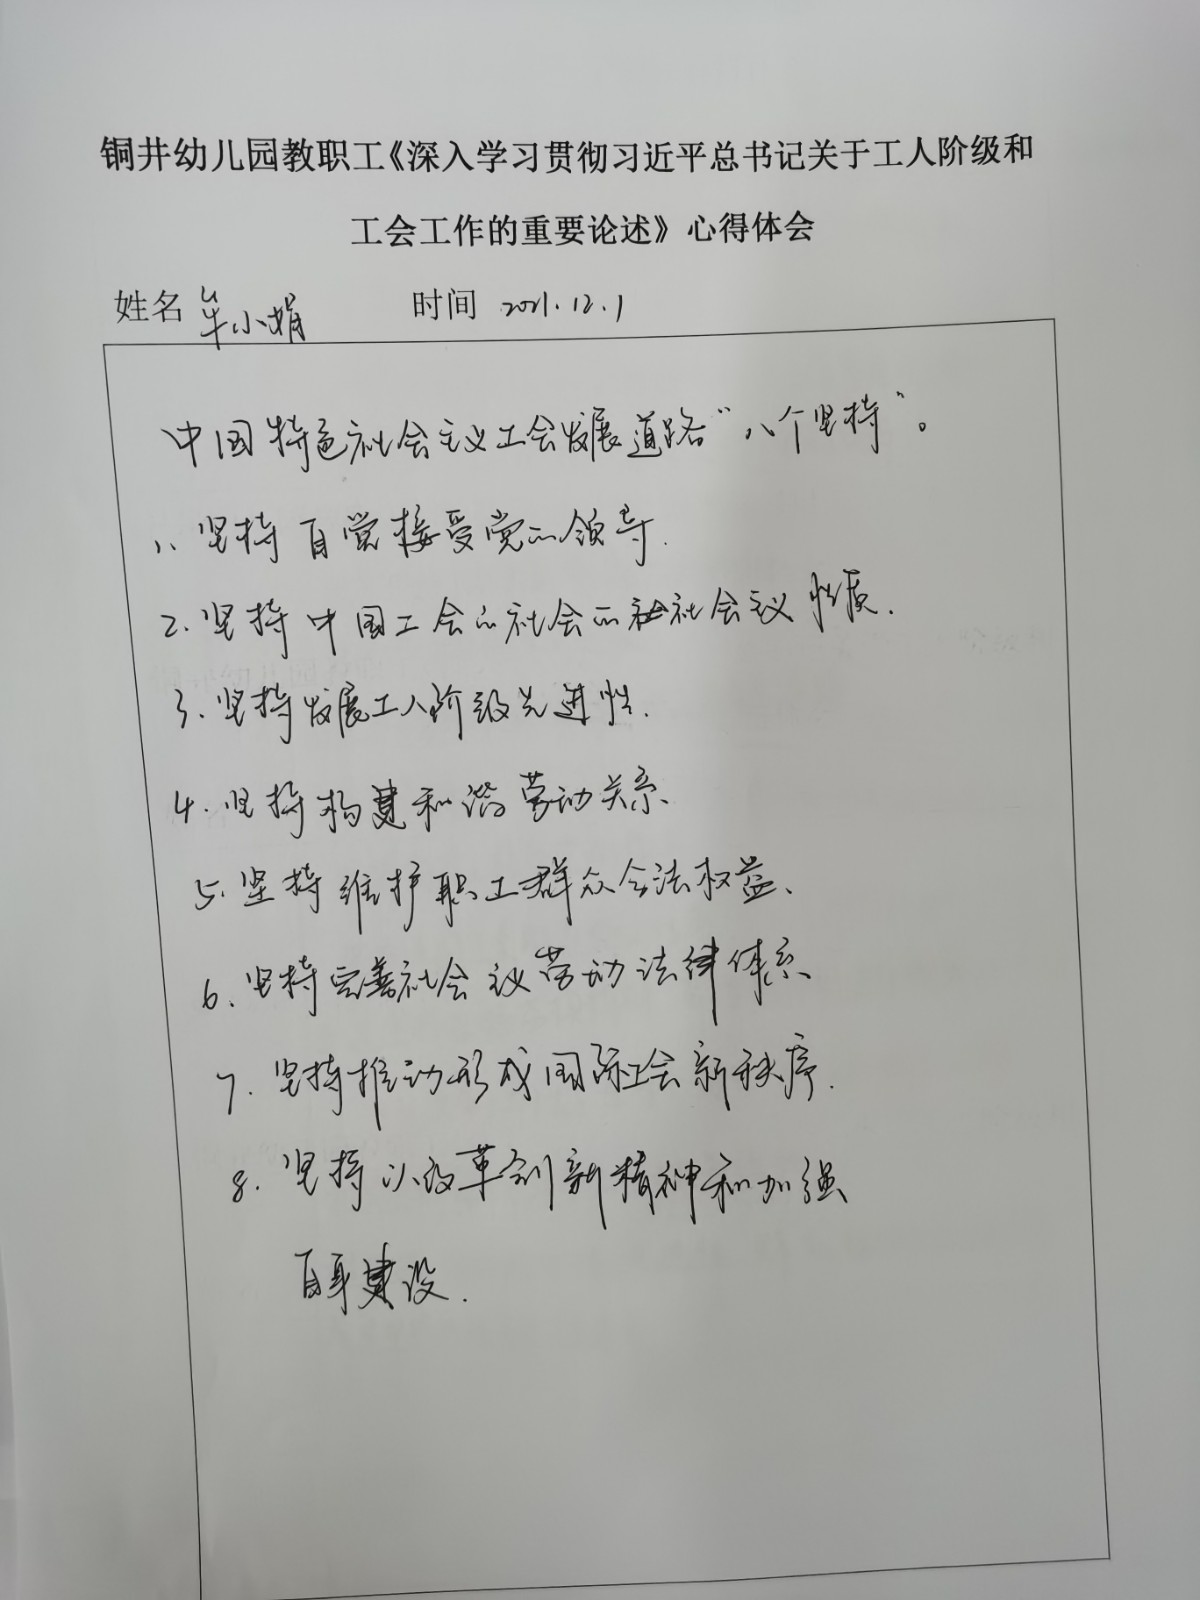 铜井幼儿园教职工《深入学习贯彻习近平总书记关于工人阶级和
工会工作的重要论述》心得体会
姓名 牟小娟 时间 2021.12.1
中国特色社会主义工会发展道路“八个坚持”。
1、坚持自觉接受党的领导.
2.坚持中国工会的社会的社会议性质.
3.坚持发展工人阶级先进性.
4.坚持构建和谐劳动关系.
5.坚持维护职工群众合法权益、
6.坚持完善社会议劳动法律体系
7.坚持推动形成国际工会新秩序.
8.坚持以改革创新精神和加强
自身建设.